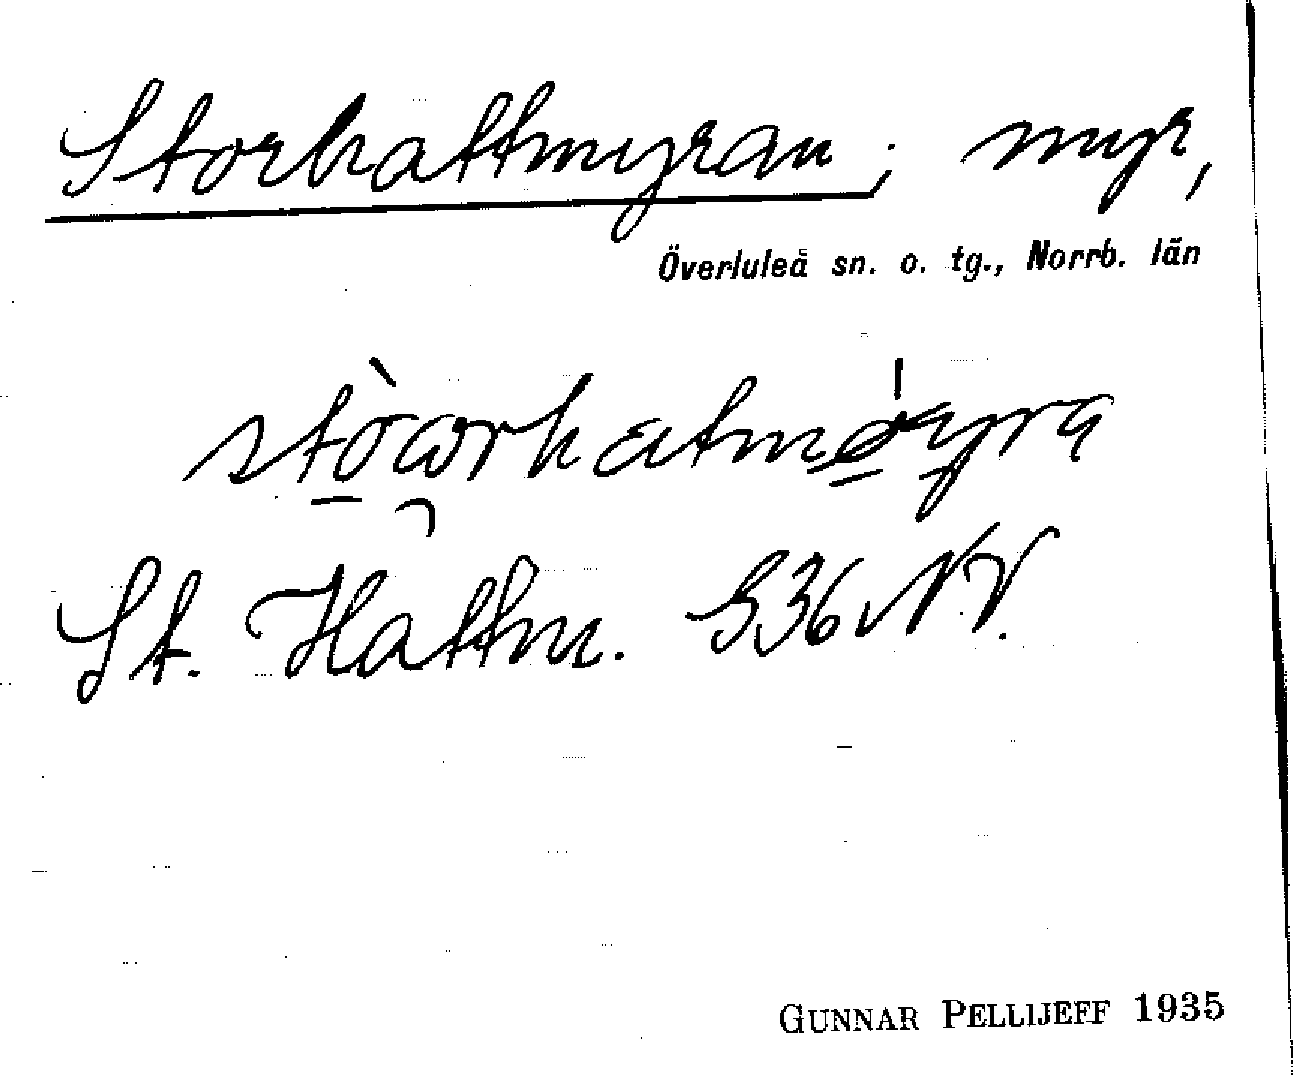 Storhattmyran, myr,
Överluleå sn. o. tg., Norrb. län
stòωrhatmø̱yra
St. Hattm. S36 NV.
GUNNAR PELLIJEFF 1935